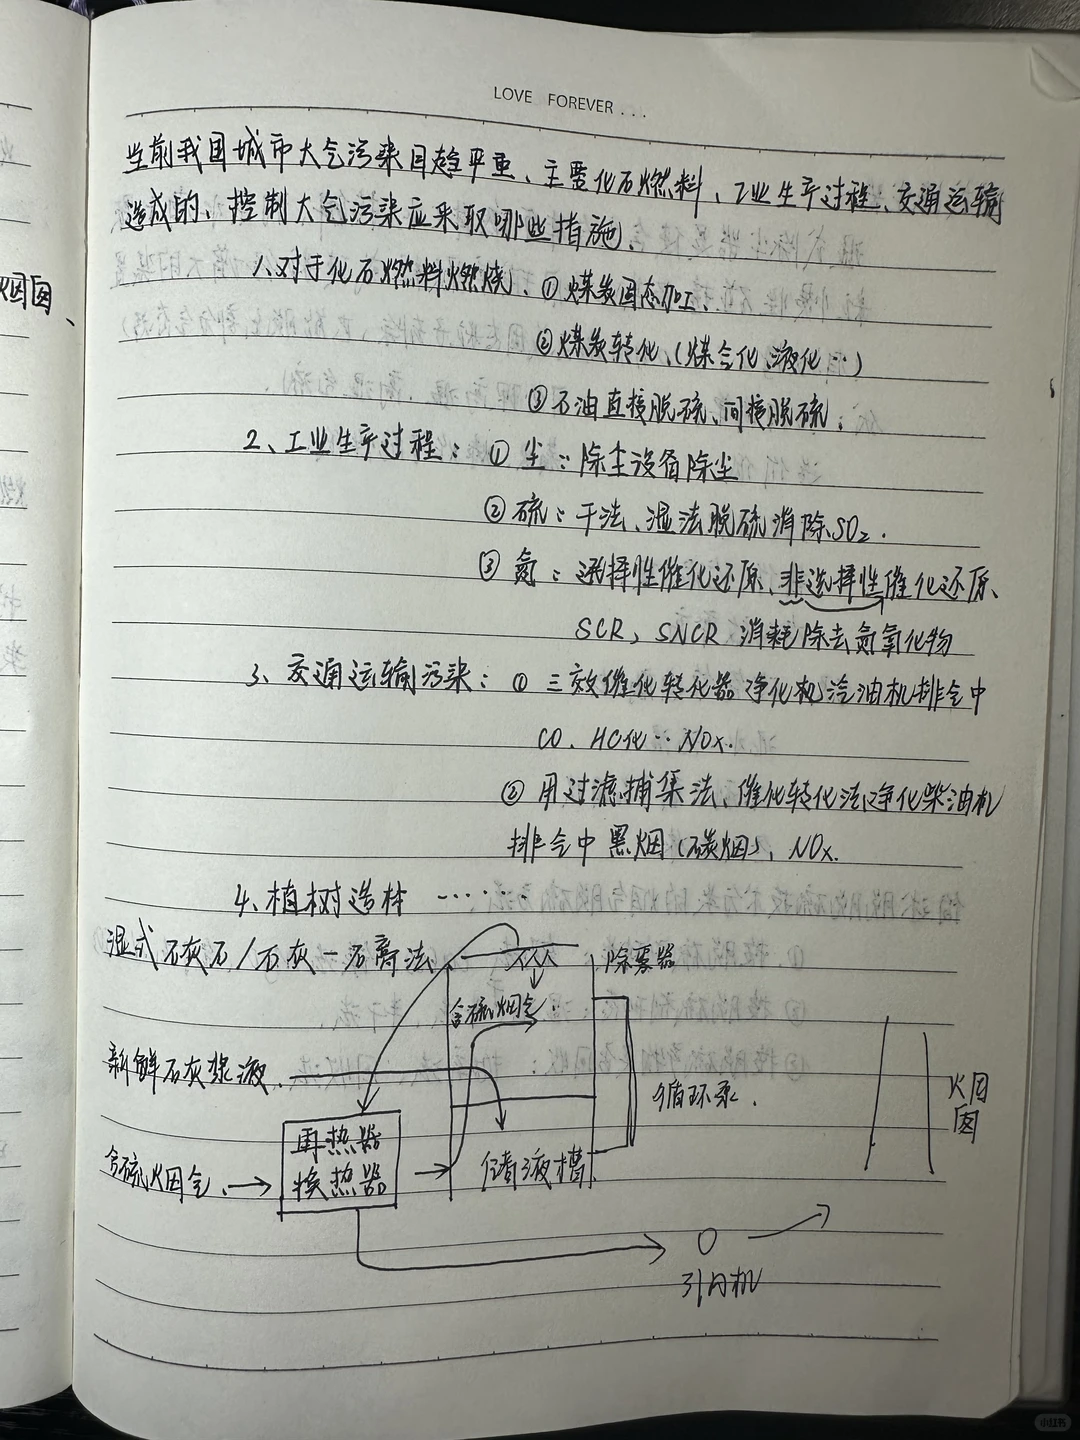 LOVE FOREVER...
当前我国城市大气污染日趋严重、主要化石燃料、工业生产过程、交通运输
造成的、控制大气污染应采取哪些措施、
烟囱、
1、对于化石燃料燃烧、①煤炭固态加工、
②煤炭转化、(煤气化、液化…)
③石油直接脱硫、间接脱硫;
2、工业生产过程:①尘:除尘设备除尘
②硫:干法、湿法脱硫消除SO₂.
③氮:选择性催化还原、非选择性催化还原、
SCR、SNCR 消耗除去氮氧化物
3、交通运输污染:①三效催化转化器净化机汽油机排气中
CO、HC化… NOx.
②用过滤捕集法、催化转化法净化柴油机
排气中黑烟(碳烟)、NOx.
4、植树造林 ……
湿式石灰石/石灰-石膏法
除雾器
含硫烟气
新鲜石灰浆液、
循环泵.
烟囱
再热器
换热器
含硫烟气、
储液槽
引风机
小红书